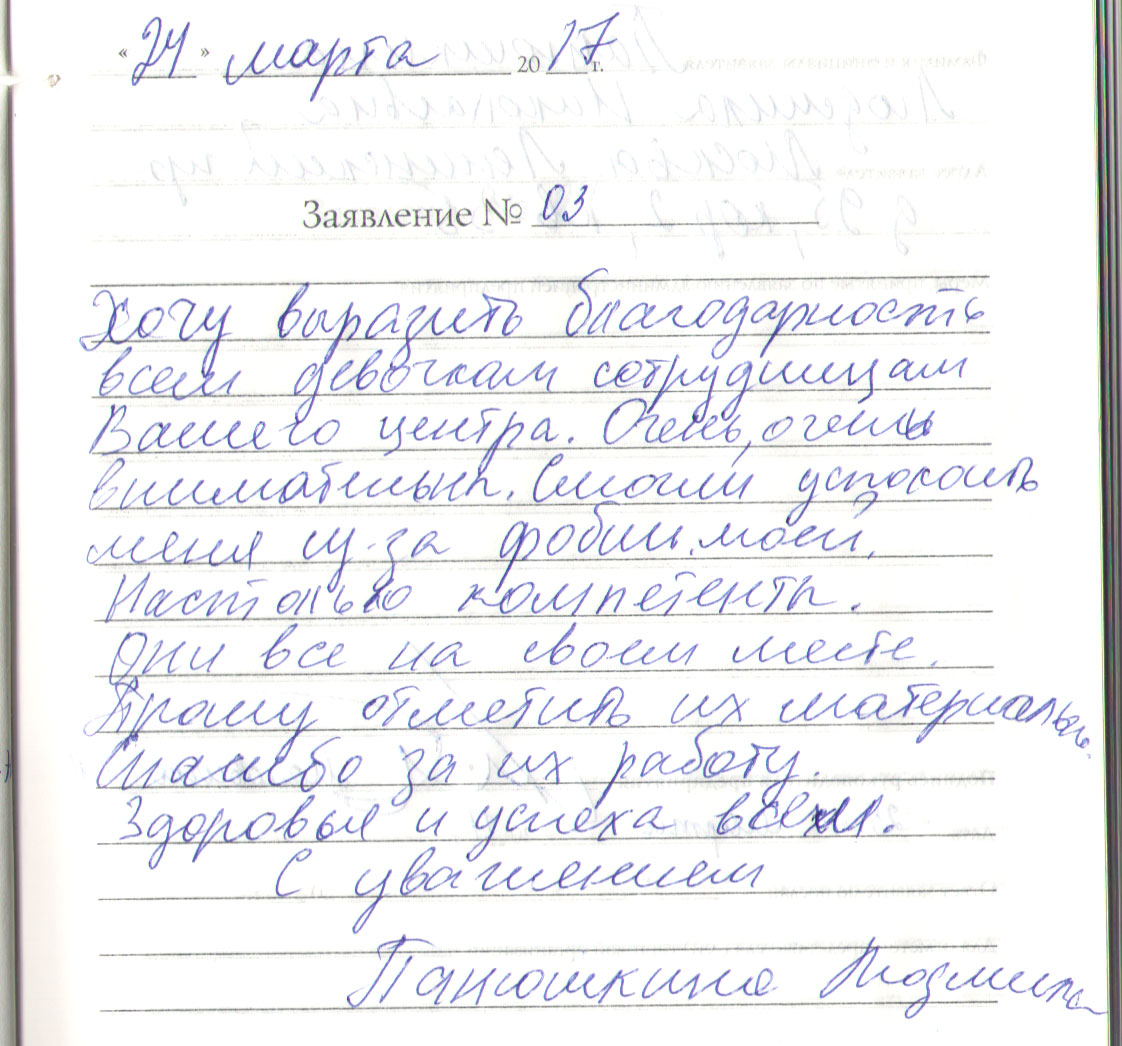 «24» марта 2017 г.
Заявление № 03
Хочу выразить благодарность
всем девочкам сотрудницам
Вашего центра. Очень, очень
внимательны. Смогли успокоить
меня из-за фобии моей.
Настолько компетенты.
Они все на своем месте.
Прошу отметить их материально.
Спасибо за их работу.
Здоровья и успеха всем.
С уважением
Панюшкина Людмила